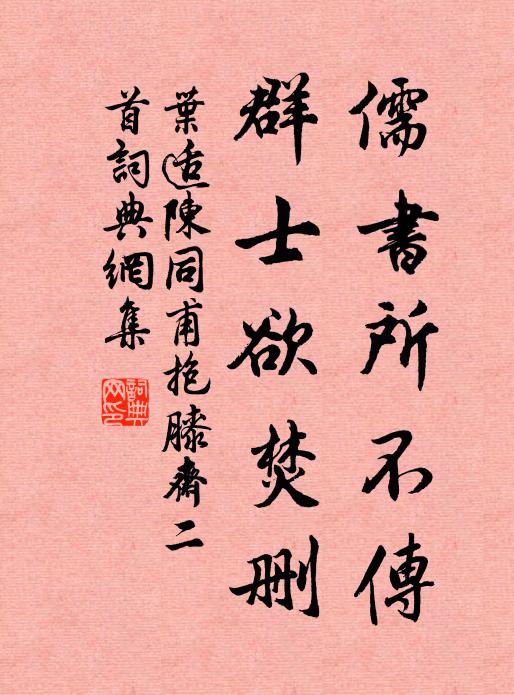 儒書所不傳
群士欲焚刪
葉适陳同甫抱膝齋二
首詞典網集
詞典網印